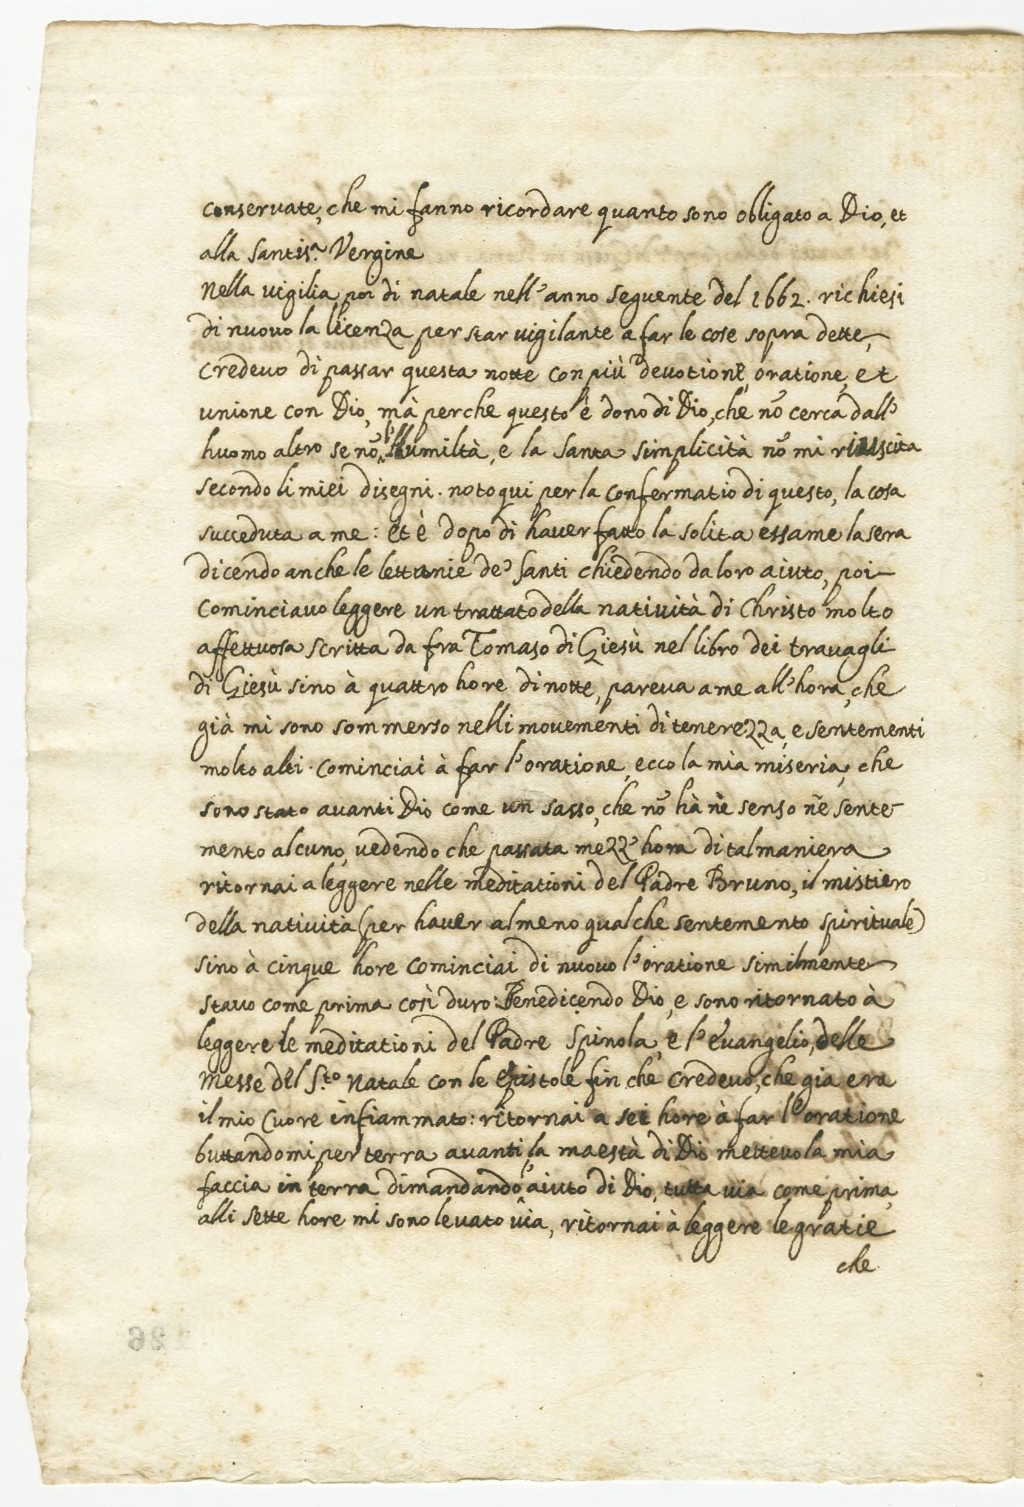 conseruate, che mi fanno ricordare quanto sono obligato a Dio, et
alla Santis.ª Vergine
Nella vigilia poi di natale nell'anno seguente del 1662. richiesi
di nuouo la licenza per star uigilante a far le cose sopra dette,
credeuo di passar questa notte con più deuotione, oratione, et
unione con Dio, mà perche questo è dono di Dio, che nō cerca dall'
huomo altro se nō l'humiltà, e la santa simplicità nō mi riuscita
secondo li miei disegni. noto qui per la confermatio di questo, la cosa
succeduta a me: et è dopo di hauer fatto la solita essame la sera
dicendo anche le lettanie de' Santi chiedendo da loro aiuto, poi
cominciauo leggere un trattato della natiuità di Christo molto
affettuosa scritta da fra Tomaso di Giesù nel libro dei trauagli
di Giesù sino à quattro hore di notte, pareua a me all'hora, che
già mi sono sommerso nelli mouementi di tenerezza, e sentementi
molto alti. Cominciai à far l'oratione, ecco la mia miseria, che
sono stato auanti Dio come un sasso, che nō hà nè senso nè sente
mento alcuno, uedendo che passata mezz'hora di tal maniera
ritornai a leggere nelle meditationi del Padre Bruno, il mistiero
della natiuità (per hauer almeno qualche sentemento spirituale)
sino à cinque hore cominciai di nuouo l'oratione similmente
stauo come prima così duro: Benedicendo Dio, e sono ritornato à
leggere le meditationi del Padre Spinola, e l'Euangelio, delle
messe del S.to Natale con le epistole fin che credeuo, che gia era
il mio Cuore infiammato: ritornai a sei hore à far l'oratione
buttandomi per terra auanti la maestà di Dio metteuo la mia
faccia in terra dimandando aiuto di Dio, tutta uia come prima,
alli sette hore mi sono leuato uia, ritornai à leggere le gratie
che
126